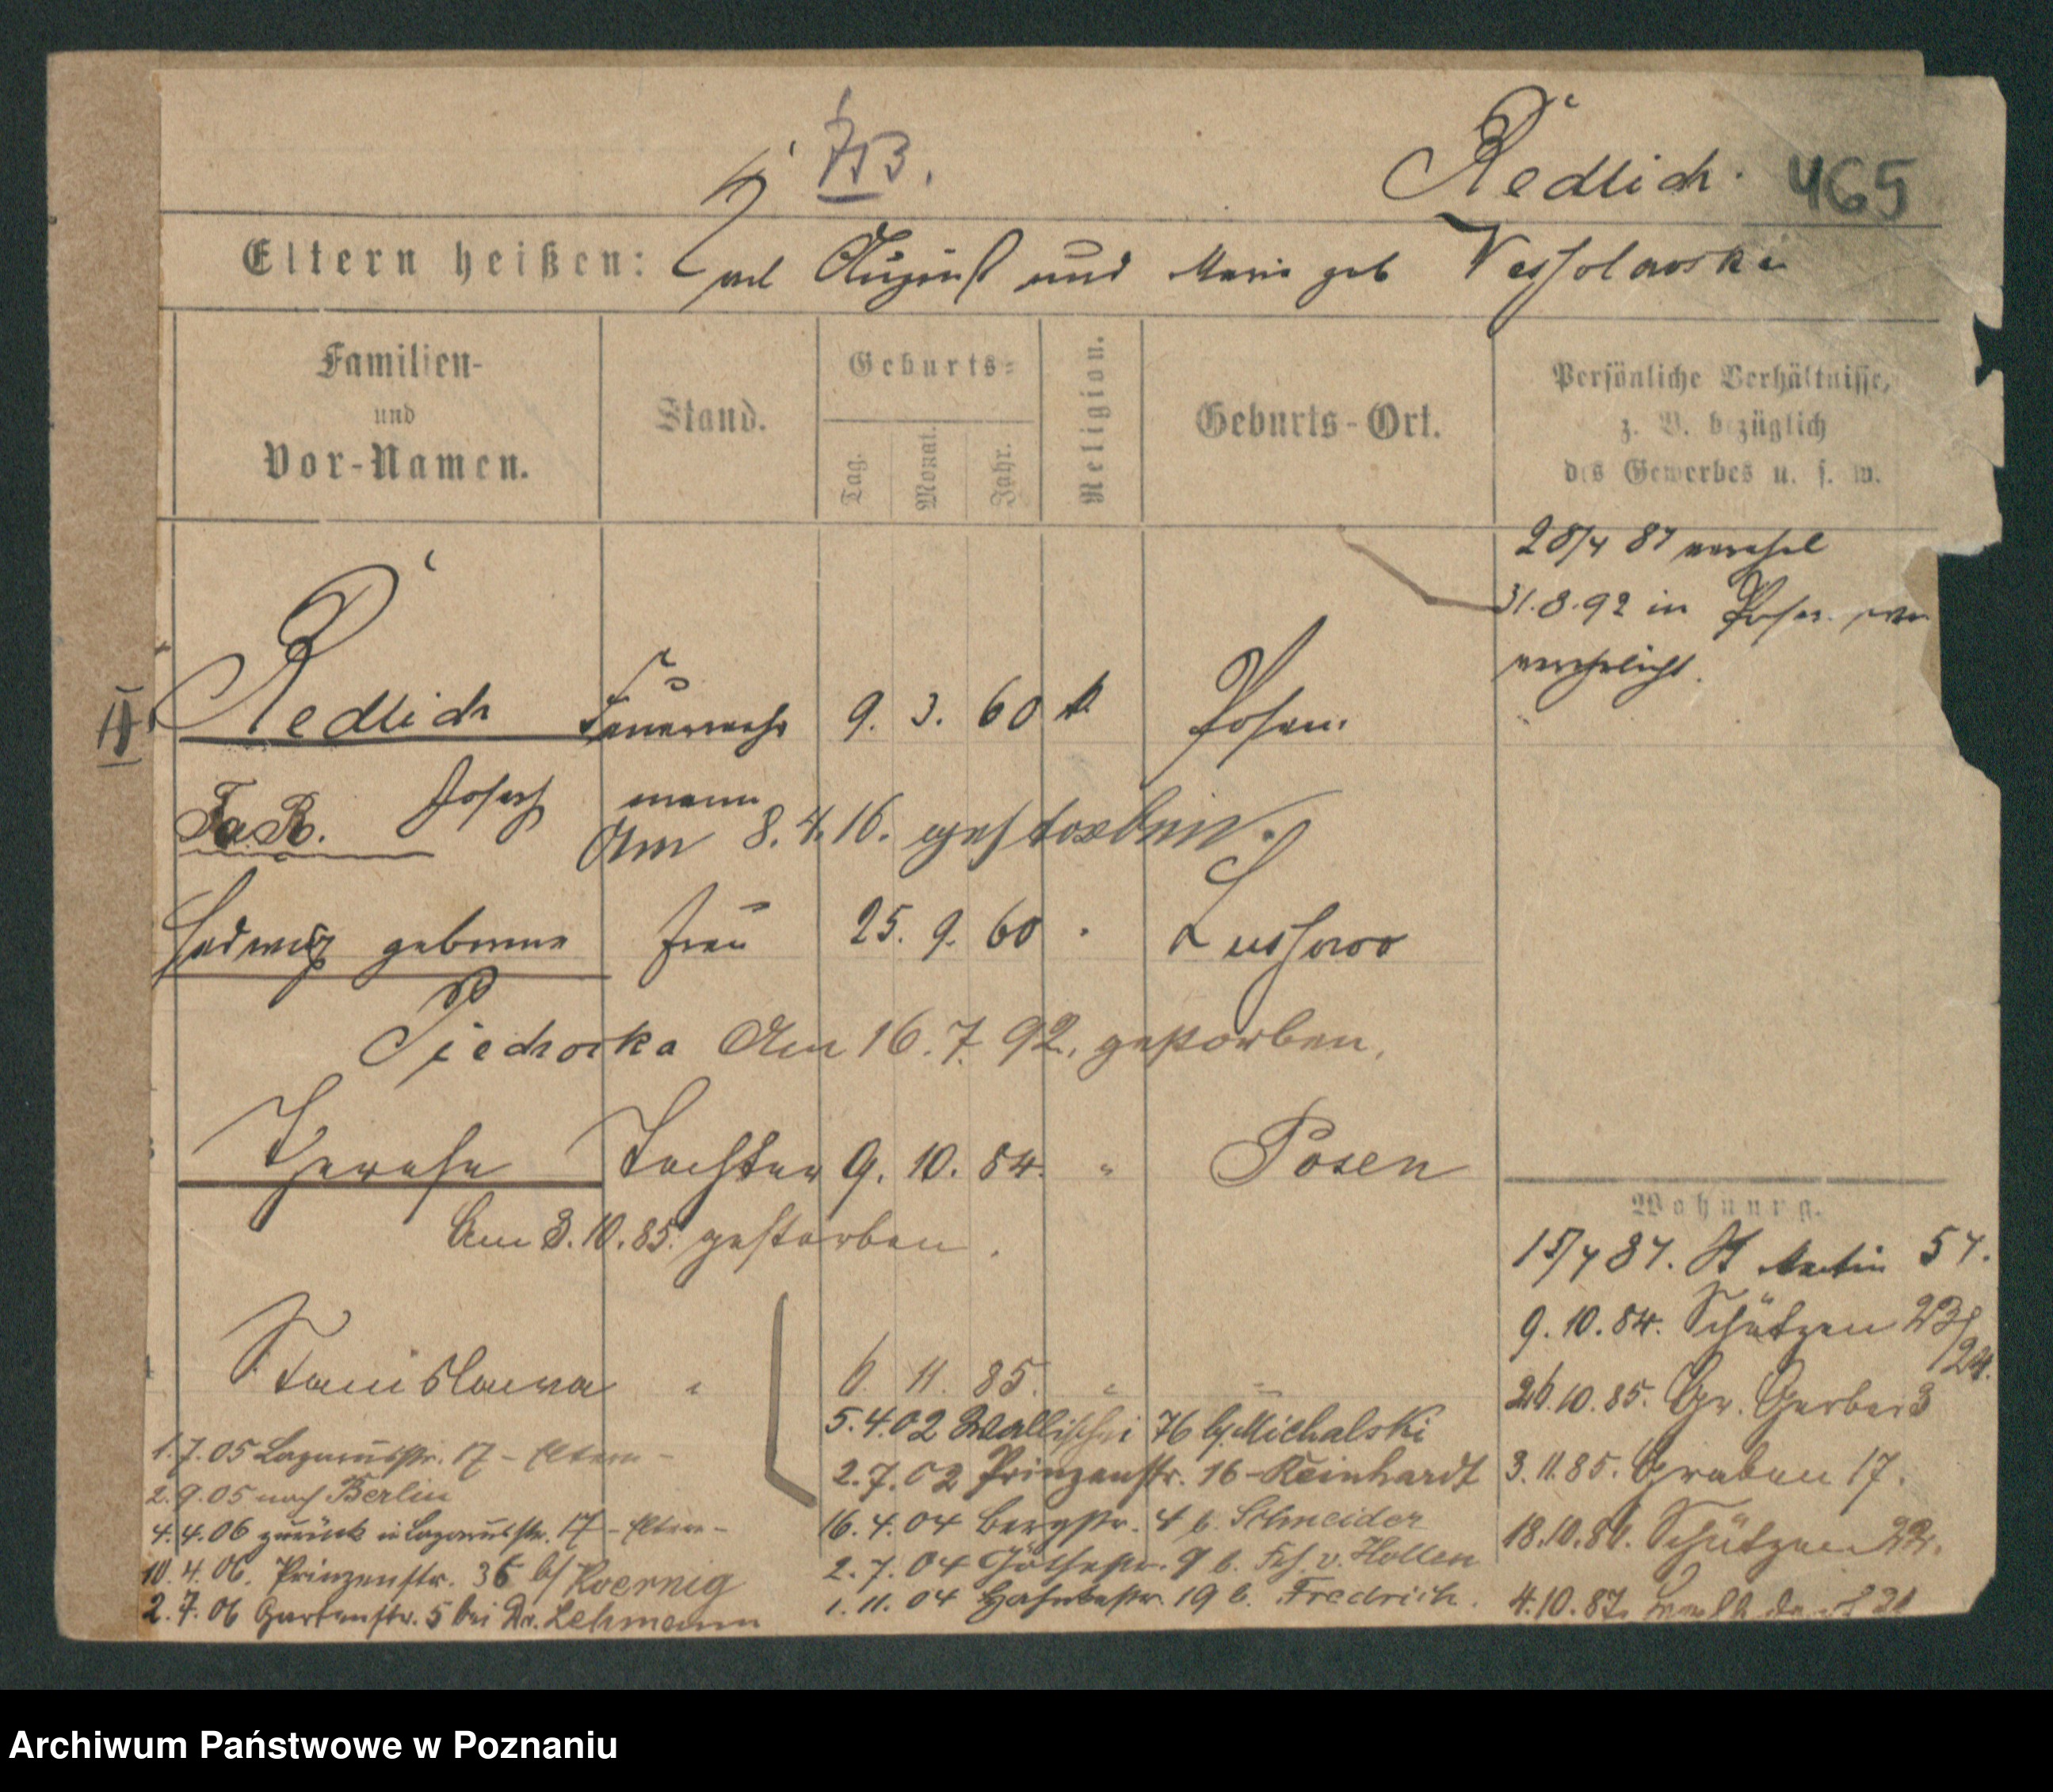 753.
Redlich. 465
Eltern heißen: August und Marie geb Wessolowska
Familien-
und
Vor-Namen.
Stand.
Geburts-
Tag.
Monat.
Jahr.
Religion.
Geburts-Ort.
Persönliche Verhältnisse,
z. B. bezüglich
des Gewerbes u. s. w.
31.8.92 in Posen
verehelicht.
II
Redlich Feuerwehr 9. 3. 60 k Posen.
Josef mann
Am 8.4.16. gestorben.
Hedwig geborene Frau 25. 9. 60 "
Am 16.7.92. gestorben.
Therese Tochter 9. 10. 84. " Posen
Am 3.10.85. gestorben.
Stanislawa " 6 11. 85. " "
5.4.02 Wallischei 76 b/Michalski
2.7.02 Prinzenstr. 16 - Reinhardt
16.4.04 Bergstr. 4 b. Schneider
2.7.04 Göthestr. 9 b. Frh. v. Hollen
1.11.04 19 b. Fredrich.
1.7.05 Lazarusstr. 17 - Eltern -
2.9.05 nach Berlin
4.4.06 zurück in Lazarusstr. 17 - Eltern -
10.4.06. Prinzenstr. 36 b/ Koernig
2.7.06 Gartenstr. 5 bei Dr. Lehmann
Wohnung.
St Martin 57.
9.10.84. Schützen 23/24.
26.10.85. Gr. Gerber 3
3.11.85. Graben 17.
18.10.86. Schützen 22.
4.10.87.
Archiwum Państwowe w Poznaniu